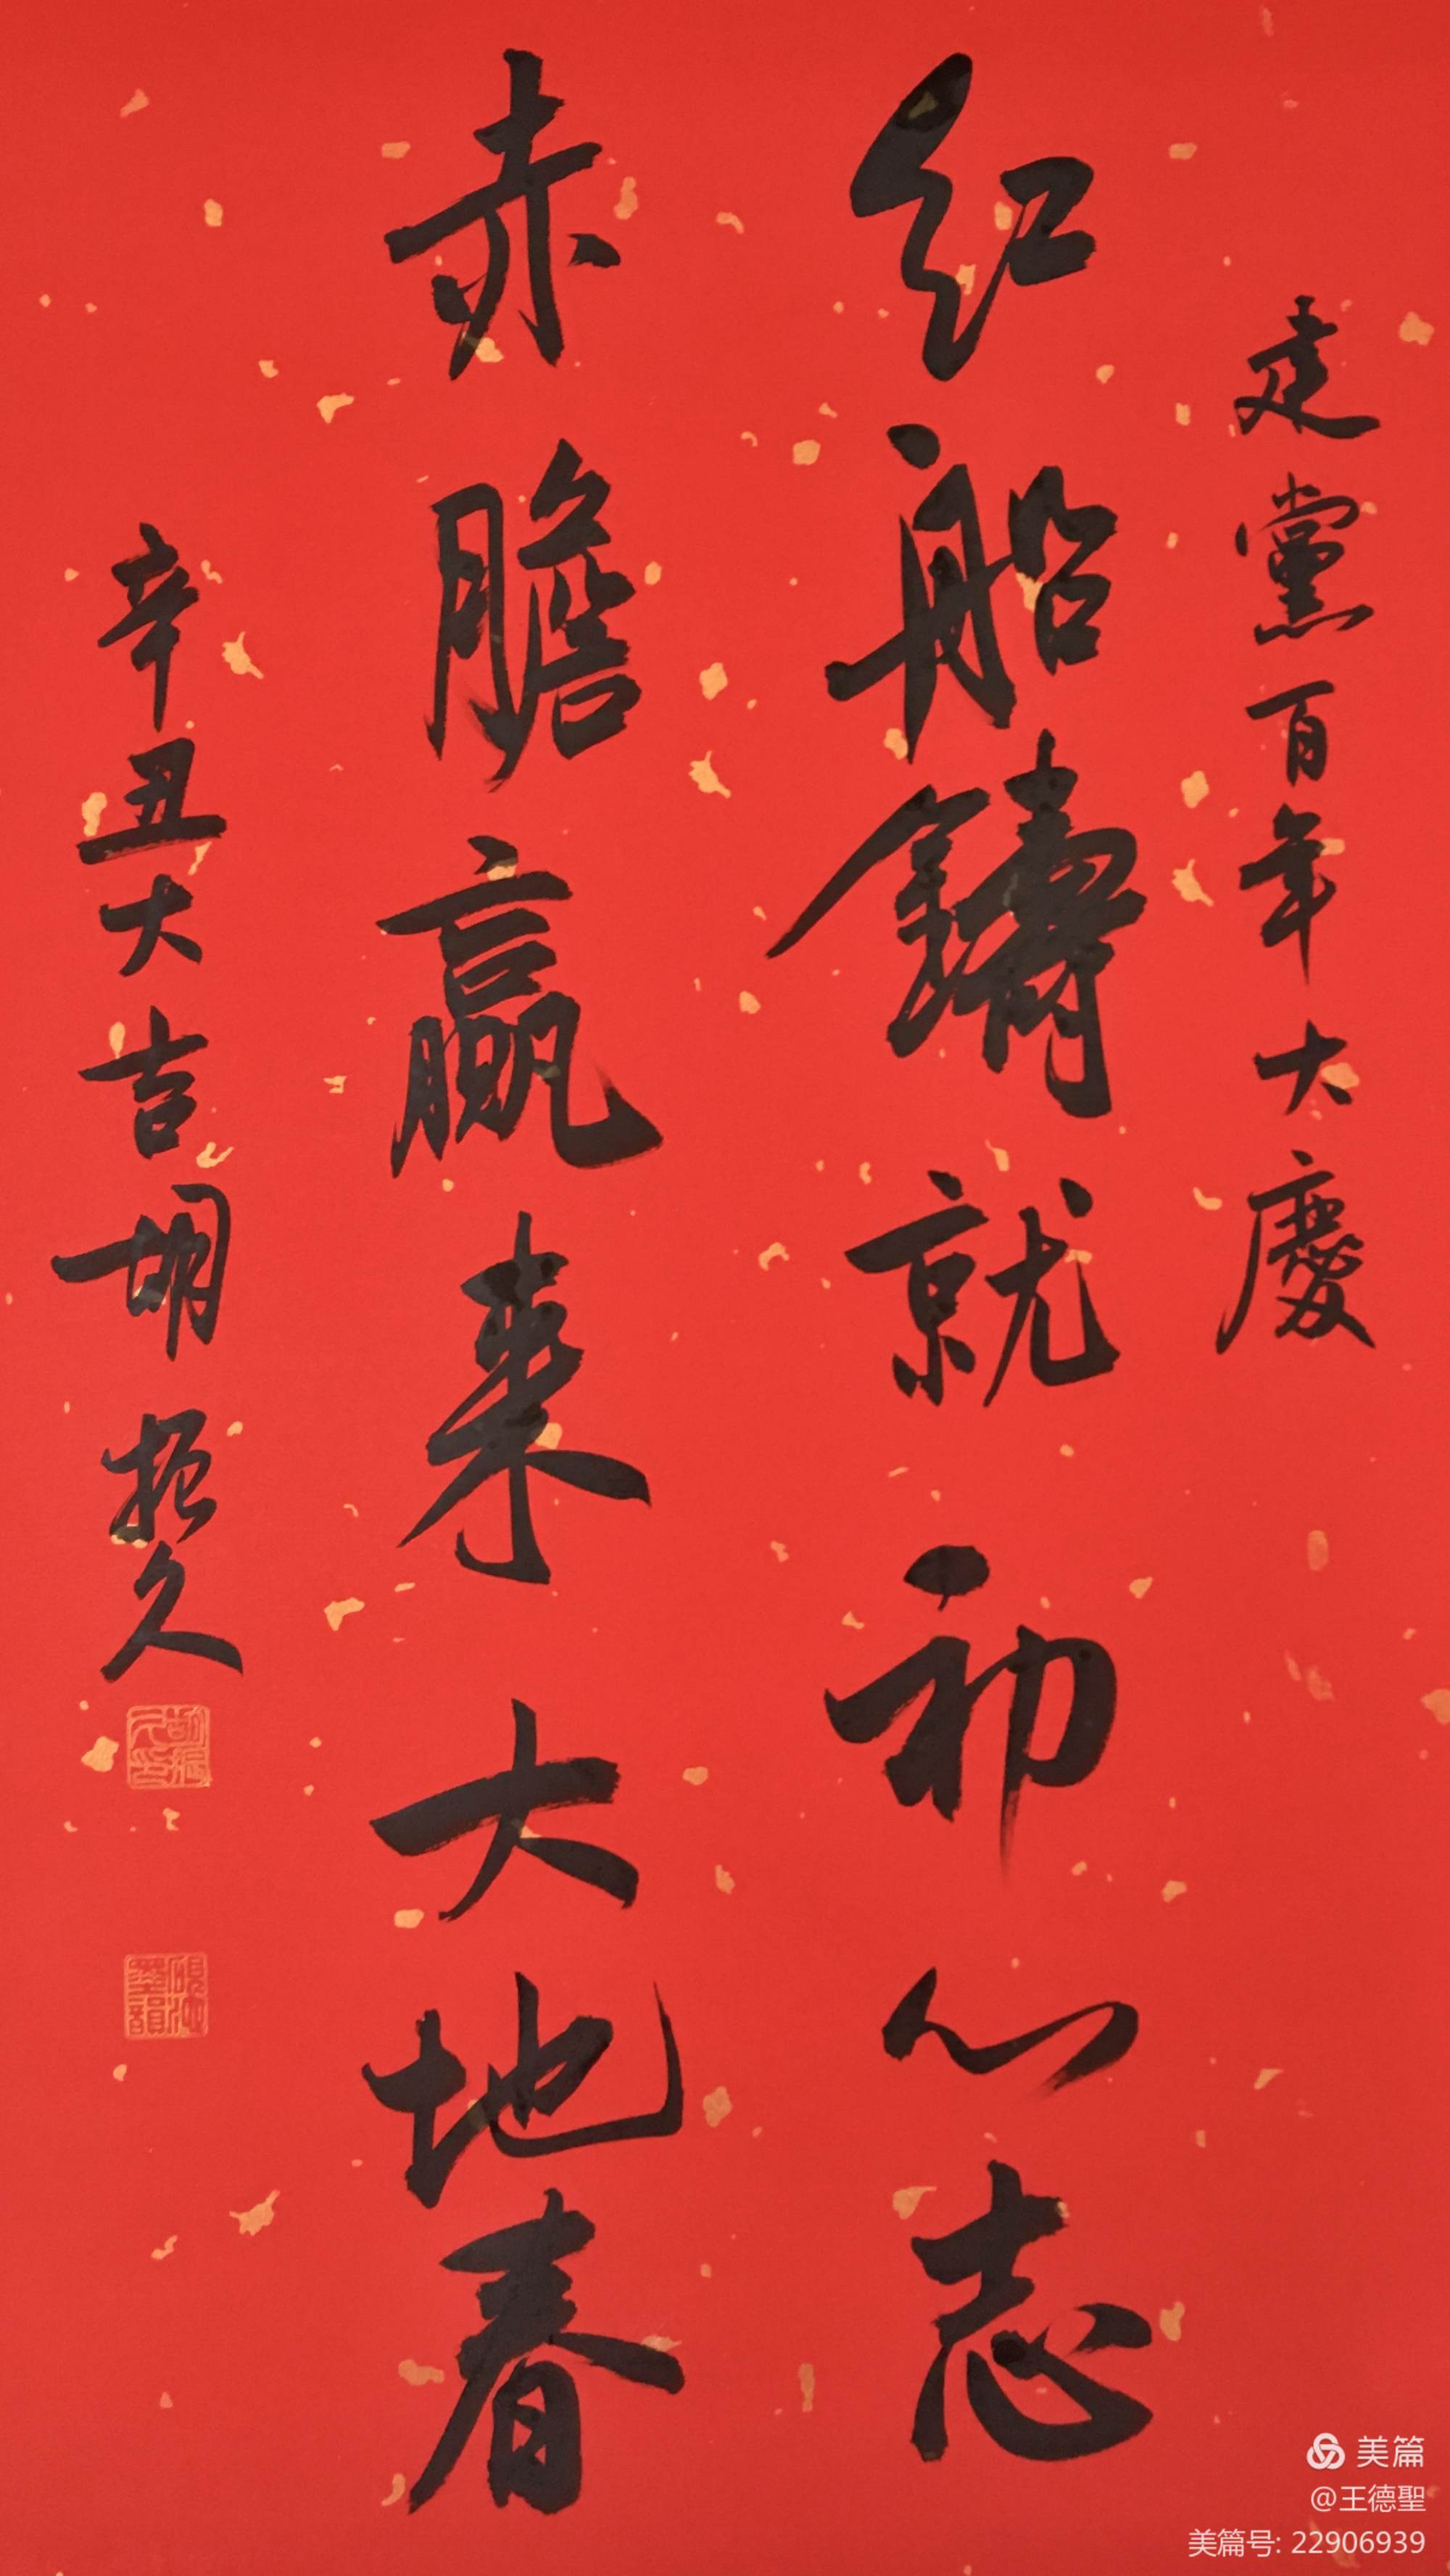 建黨百年大慶
红船鑄就初心志
赤膽贏来大地春
辛丑大吉胡振久
硯池墨韻
美篇
@王德聖
美篇号: 22906939